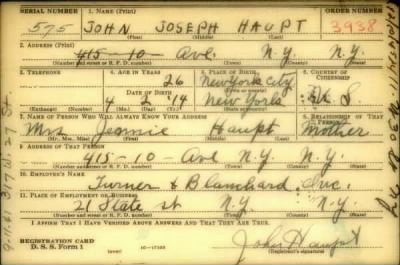 SERIAL NUMBER 1. NAME (Print) ORDER NUMBER
575 JOHN JOSEPH HAUPT 3938
(First) (Middle) (Last)
2. ADDRESS (Print)
415-10- Ave. N.Y. N.Y.
(Number and street or R. F. D. number) (Town) (County) (State)
3. TELEPHONE 4. AGE IN YEARS 5. PLACE OF BIRTH 6. COUNTRY OF CITIZENSHIP
26 New York City
DATE OF BIRTH (Town or county)
4 2 '14 New York U. S.
(Exchange) (Number) (Mo.) (Day) (Yr.) (State or country)
7. NAME OF PERSON WHO WILL ALWAYS KNOW YOUR ADDRESS 8. RELATIONSHIP OF THAT PERSON
Mrs. Jennie Haupt Mother
(Mr., Mrs., Miss) (First) (Middle) (Last)
9. ADDRESS OF THAT PERSON
415-10- Ave N.Y. N.Y.
(Number and street or R. F. D. number) (Town) (County) (State)
10. EMPLOYER'S NAME
Turner & Blanchard, Inc.
11. PLACE OF EMPLOYMENT OR BUSINESS
21 State st N.Y. N.Y.
(Number and street or R. F. D. number) (Town) (County) (State)
I AFFIRM THAT I HAVE VERIFIED ABOVE ANSWERS AND THAT THEY ARE TRUE.
REGISTRATION CARD
D. S. S. Form 1 John Haupt
(Registrant's signature)
317 W. 27 St.